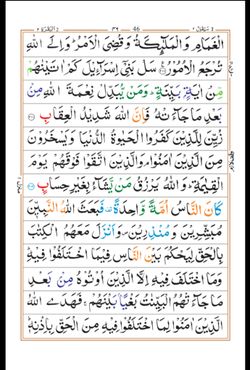 الْغَمَامِ وَالْمَلٰٓئِكَةُ وَقُضِيَ الْاَمْرُ ؕ وَاِلَى اللّٰهِ
تُرْجَعُ الْاُمُوْرُ سَلْ بَنِيْٓ اِسْرَآءِيْلَ كَمْ اٰتَيْنٰهُمْ
مِّنْ اٰيَةٍۭ بَيِّنَةٍ ؕ وَمَنْ يُّبَدِّلْ نِعْمَةَ اللّٰهِ مِنْۢ
بَعْدِ مَا جَآءَتْهُ فَاِنَّ اللّٰهَ شَدِيْدُ الْعِقَابِ
زُيِّنَ لِلَّذِيْنَ كَفَرُوا الْحَيٰوةُ الدُّنْيَا وَيَسْخَرُوْنَ
مِنَ الَّذِيْنَ اٰمَنُوْا ۘ وَالَّذِيْنَ اتَّقَوْا فَوْقَهُمْ يَوْمَ
الْقِيٰمَةِ ؕ وَاللّٰهُ يَرْزُقُ مَنْ يَّشَآءُ بِغَيْرِ حِسَابٍ
كَانَ النَّاسُ اُمَّةً وَّاحِدَةً فَبَعَثَ اللّٰهُ النَّبِيّٖنَ
مُبَشِّرِيْنَ وَمُنْذِرِيْنَ ۪ وَاَنْزَلَ مَعَهُمُ الْكِتٰبَ
بِالْحَقِّ لِيَحْكُمَ بَيْنَ النَّاسِ فِيْمَا اخْتَلَفُوْا فِيْهِ ؕ
وَمَا اخْتَلَفَ فِيْهِ اِلَّا الَّذِيْنَ اُوْتُوْهُ مِنْۢ بَعْدِ
مَا جَآءَتْهُمُ الْبَيِّنٰتُ بَغْيًاۢ بَيْنَهُمْ ۚ فَهَدَى اللّٰهُ
الَّذِيْنَ اٰمَنُوْا لِمَا اخْتَلَفُوْا فِيْهِ مِنَ الْحَقِّ بِاِذْنِهٖ